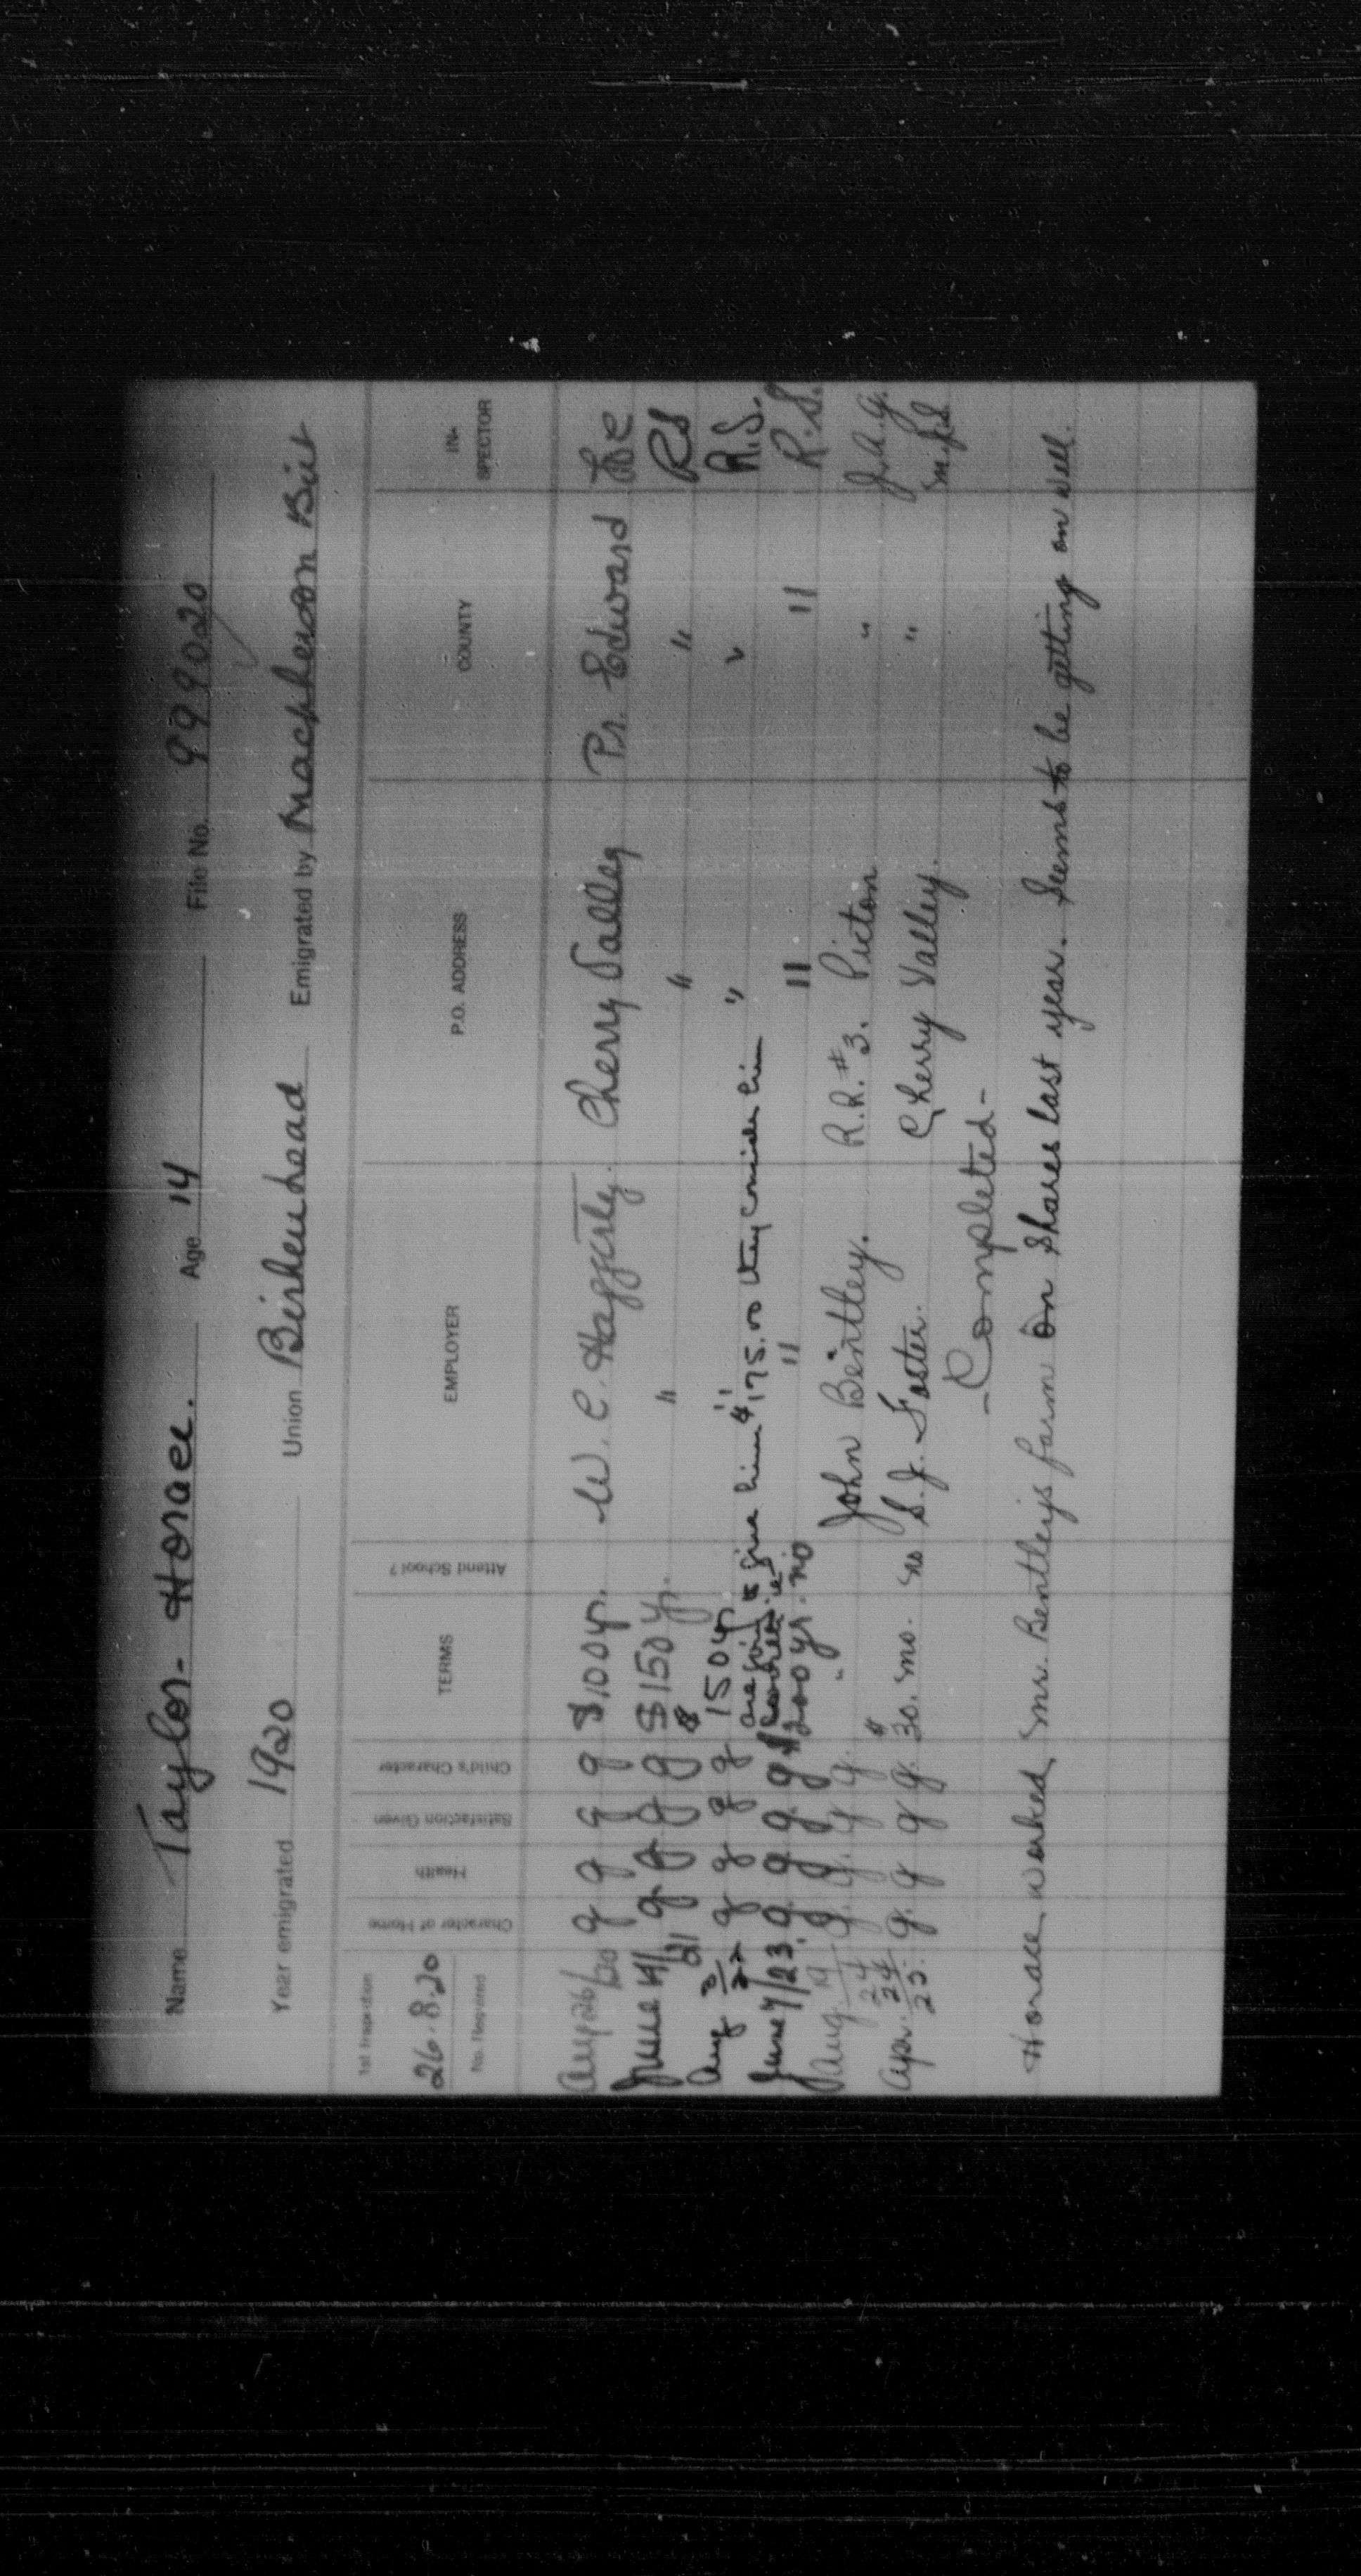 Name Taylor - Horace. Age 14 File No. 999020
Year emigrated 1920 Union Birkenhead Emigrated by Macpherson Birt
1st Inspection
26.8.20
No. Required
Character of Home Health Satisfaction Given Child's Character TERMS Attend School? EMPLOYER P.O. ADDRESS COUNTY IN-SPECTOR
Aug 26/20 g g g g $100 yr. W. C. Haggerty. Cherry Valley Pr. Edward
June 21 g g g g $150 yr. " " " RS
Aug 22 g g g g $150 yr " " " R.S.
are going to give him $175.00 they consider him
June 4/23. g g g g $200 yr. no " " " R.S.
Aug. 19/24 g. g. g g. " John Bentley. R.R. #3. Picton " J.A.G.
Apr. 24/25. g. g g g. $30. mo. no S. J. Foster. Cherry Valley. "
- Completed -
Horace worked Mr. Bentleys farm on shares last year. Seems to be getting on well.